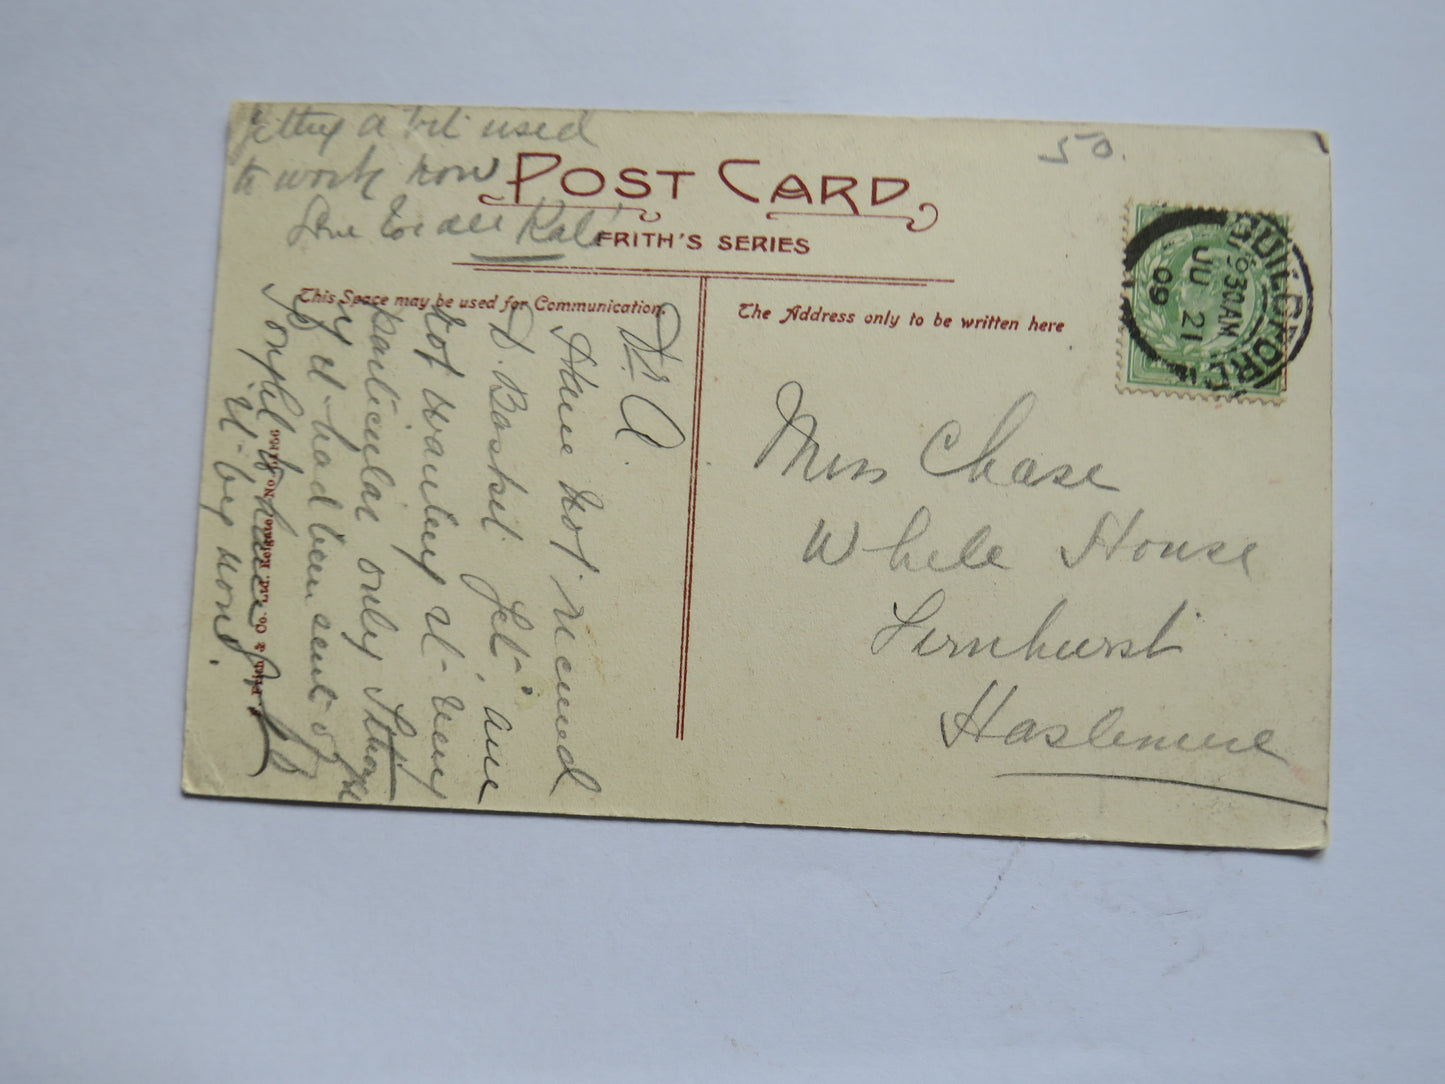 POST CARD
FRITH'S SERIES
This Space may be used for Communication.
The Address only to be written here
50.
GUILDFORD
9 30AM
JU 21
09
Miss Chase
White House
Fernhurst
Haslemere
Dr A
Have not received
D. Basket yet, am
not wanting it very
particular only I thought
if it had been sent of
I ought to have
it by now.
getting a bit used
to work now
Love to all Kate
F. Frith & Co. Ltd. Reigate, No.